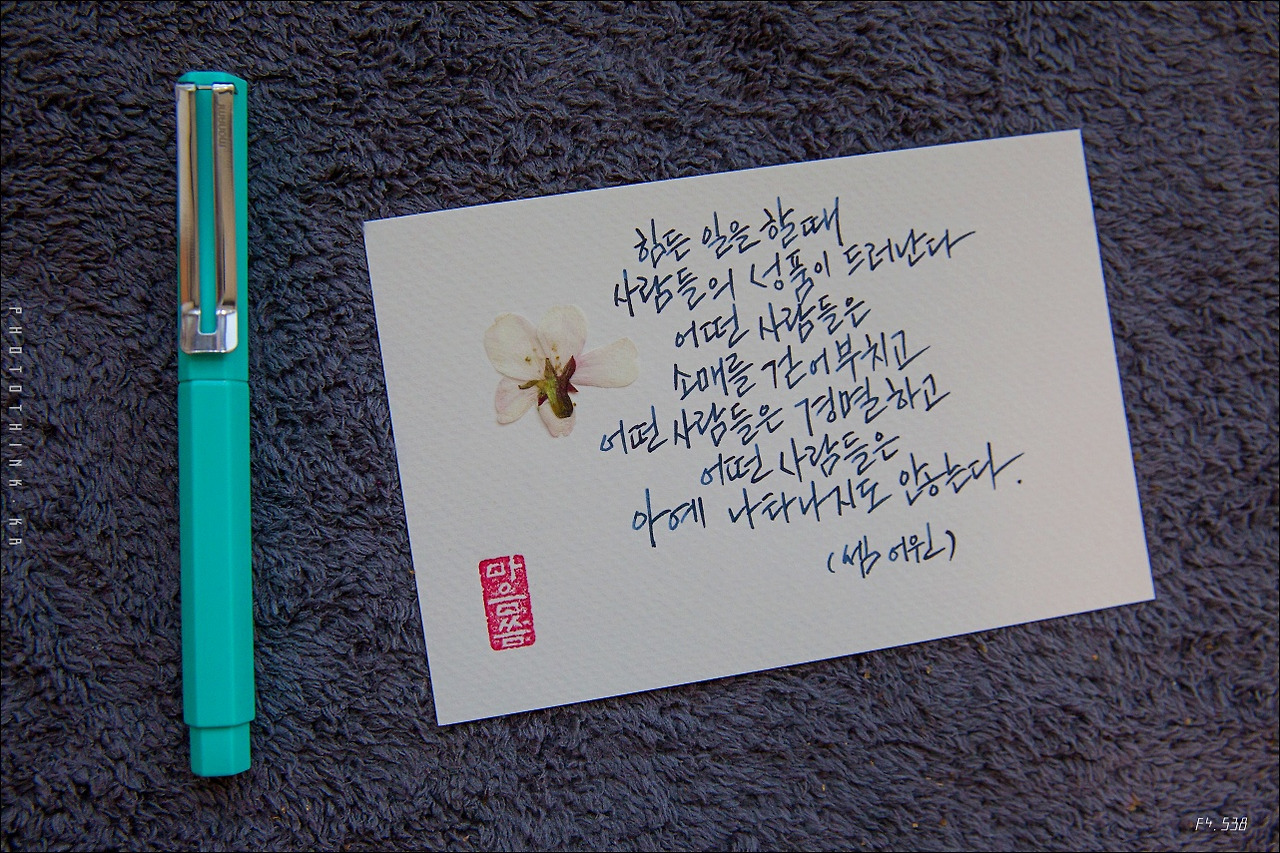 힘든 일을 할때
사람들의 성품이 드러난다
어떤 사람들은
소매를 걷어부치고
어떤 사람들은 경멸하고
어떤 사람들은
아예 나타나지도 않는다.
(쌤 어윈)
PHOTOTHINK.KR
F4.538